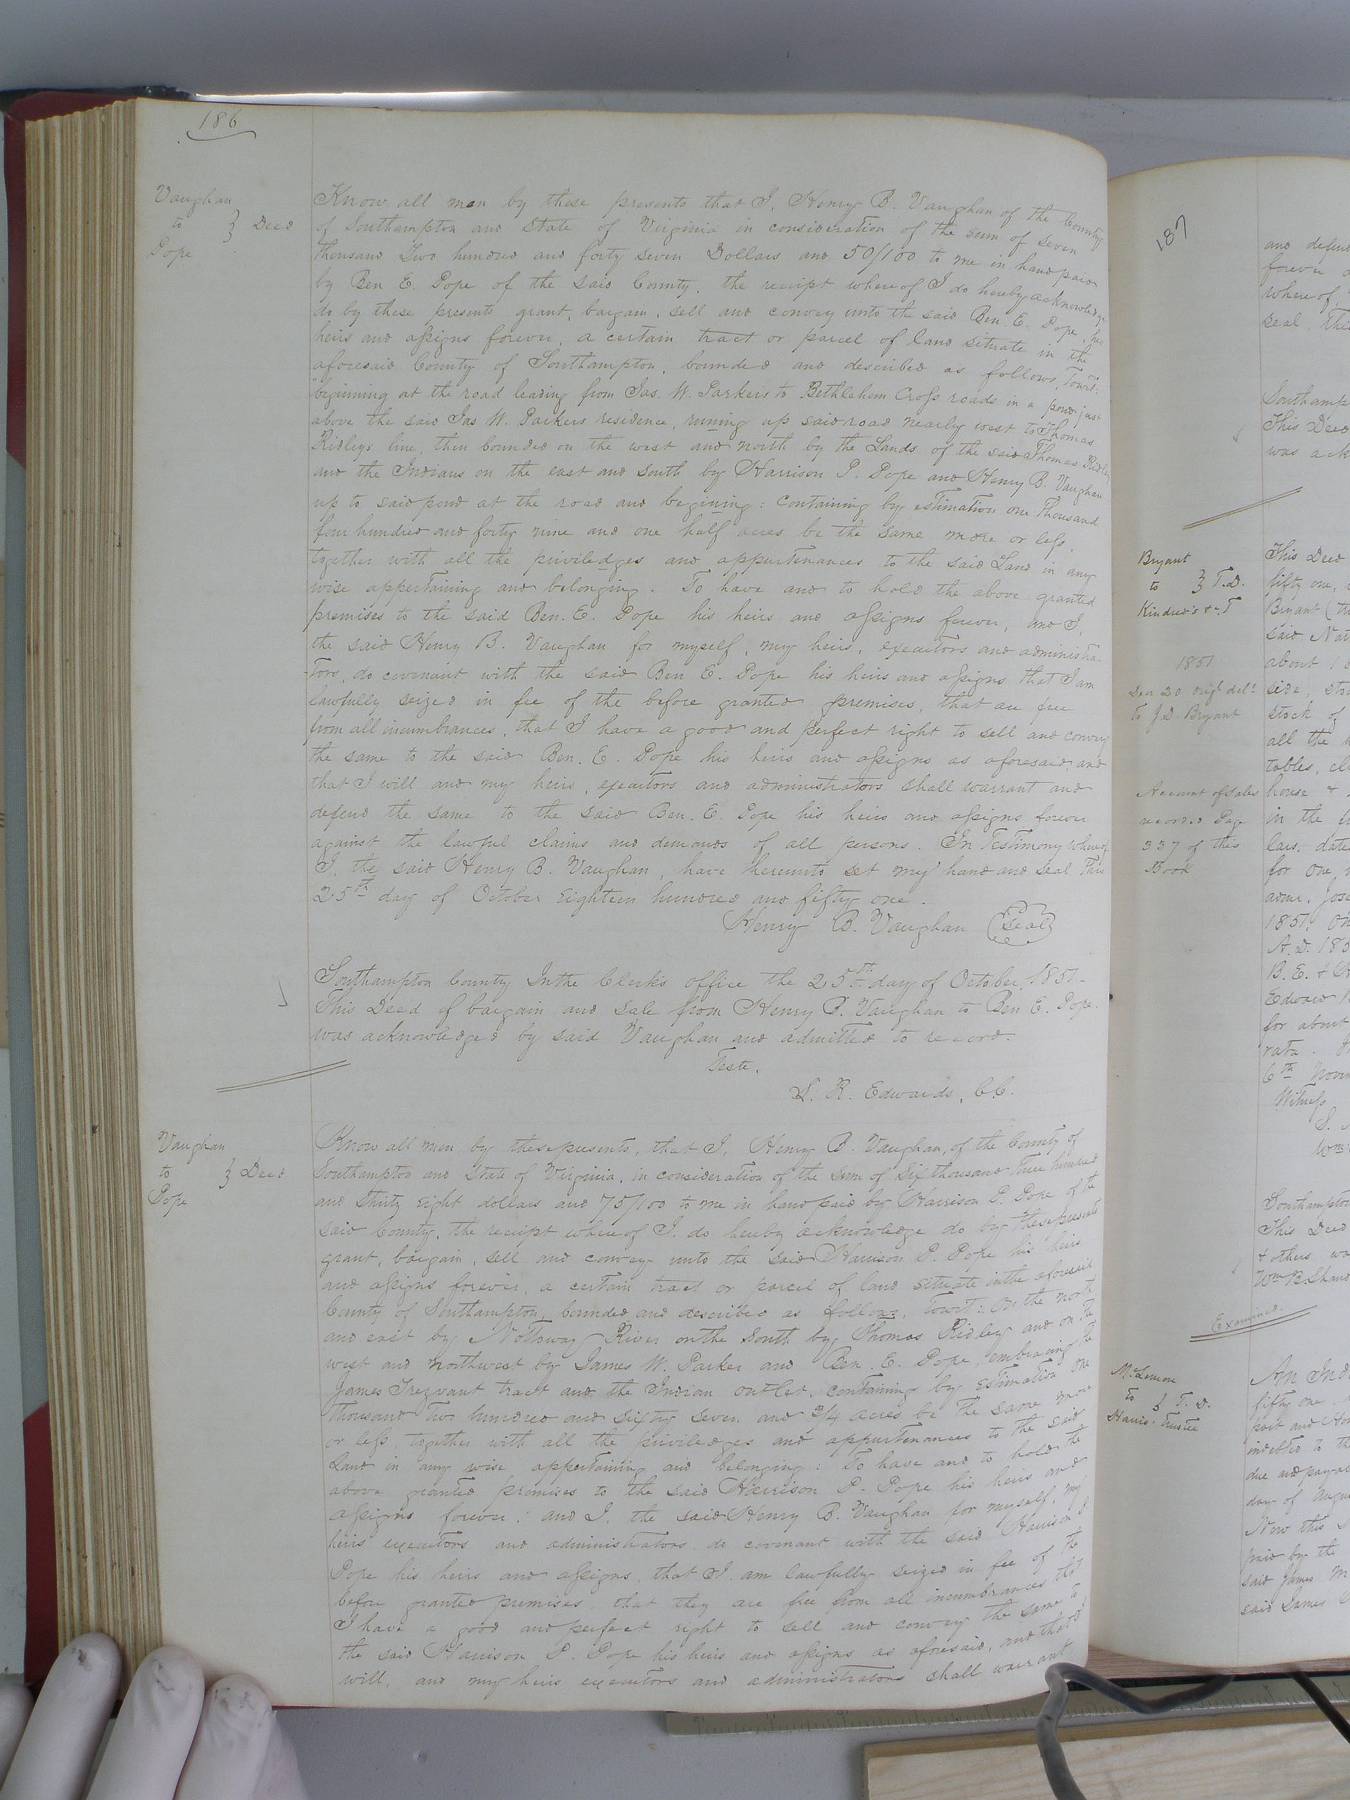 186
Vaughan
to } Deed
Pope
Know all men by these presents that I, Henry B. Vaughan of the County
of Southampton and State of Virginia in consideration of the sum of seven
thousand Two hundred and forty seven Dollars and 50/100 to me in hand paid
by Ben E. Pope of the said County, the receipt whereof I do hereby acknowledge
do by these presents grant, bargain, sell and convey unto the said Ben. E. Pope, his
heirs and assigns forever, a certain tract or parcel of land situate in the
aforesaid County of Southampton, bounded and described as follows, Towit:
beginning at the road leading from Jas. W. Parkers to Bethlehem Cross roads in a pond just
above the said Jas W. Parkers residence, runing up said road nearly west to Thomas
Ridleys line, then bounded on the west and north by the Lands of the said Thomas Ridley
and the Indians on the east and south by Harrison P. Pope and Henry B. Vaughan
up to said pond at the road and begining: Containing by estimation one Thousand
four hundred and forty nine and one half acres be the same more or less,
together with all the priviledges and appurtenances to the said Land in any
wise appertaining and belonging. To have and to hold the above granted
premises to the said Ben. E. Pope his heirs and assigns forever, and I,
the said Henry B. Vaughan for myself, my heirs, executors and administra-
tors, do covenant with the said Ben E. Pope his heirs and assigns that I am
lawfully seized in fee of the before granted premises, that are free
from all incumbrances, that I have a good and perfect right to sell and convey
the same to the said Ben. E. Pope his heirs and assigns as aforesaid, and
that I will and my heirs, executors and administrators shall warrant and
defend the same to the said Ben. E. Pope his heirs and assigns forever
against the lawful claims and demands of all persons. In Testimony whereof
I, the said Henry B. Vaughan, have hereunto set my hand and seal this
25th day of October Eighteen hundred and fifty one.
Henry B. Vaughan (Seal)
Southampton County In the Clerk's office the 25th day of October 1851-
This Deed of bargain and sale from Henry B. Vaughan to Ben E. Pope
was acknowledged by said Vaughan and admitted to record.
Teste,
L. R. Edwards, C.C.
Vaughan
to } Deed
Pope
Know all men by these presents, that I, Henry B. Vaughan, of the County of
Southampton and State of Virginia, in consideration of the sum of Six thousand three hundred
and thirty eight dollars and 75/100 to me in hand paid by Harrison P. Pope of the
said County, the receipt whereof I do hereby acknowledge do by these presents
grant, bargain, sell and convey unto the said Harrison P. Pope his heirs
and assigns forever, a certain tract or parcel of land situate in the aforesaid
County of Southampton, bounded and described as follows, Towit: On the north
and east by Nottoway River on the South by Thomas Ridley and on the
west and northwest by James W. Parker and Ben. E. Pope, embracing the
James Trezvant tract and the Indian outlet, containing by estimation one
thousand two hundred and sixty seven and 3/4 acres be the same more
or less, together with all the priviledges and appurtenances to the said
Land in any wise appertaining and belonging: To have and to hold the
above granted premises to the said Harrison P. Pope his heirs and
assigns forever: and I, the said Henry B. Vaughan for myself, my
heirs executors and administrators do covenant with the said Harrison P.
Pope his heirs and assigns, that I am lawfully seized in fee of the
before granted premises, that they are free from all incumbrances that
I have a good and perfect right to sell and convey the same to
the said Harrison P. Pope his heirs and assigns as aforesaid, and that I
will, and my heirs executors and administrators shall warrant
187
and defend
forever
whereof,
seal, this
Southampton
This Deed
was ack
Bryant
to } T.D.
Kindred's &c T
1851
20 orig' del'd
to J. D. Bryant
Account of sales
recorded Page
337 of this
Book
This Deed
fifty one,
Bryant
said Nat
about
side,
stock of
all the
tables,
house &
in the
lars, date
for one,
1851.
A.D. 185
B. E. &
Edward
for about
rata.
6th Nov
Witness
Southampton
This Deed
& others
Examined.
McLemore
to } T. D.
Harris Trustee
An Ind
fifty one
part and
indebted to the
due and payable
day of Augus
Now this
paid by the
said James M
said James